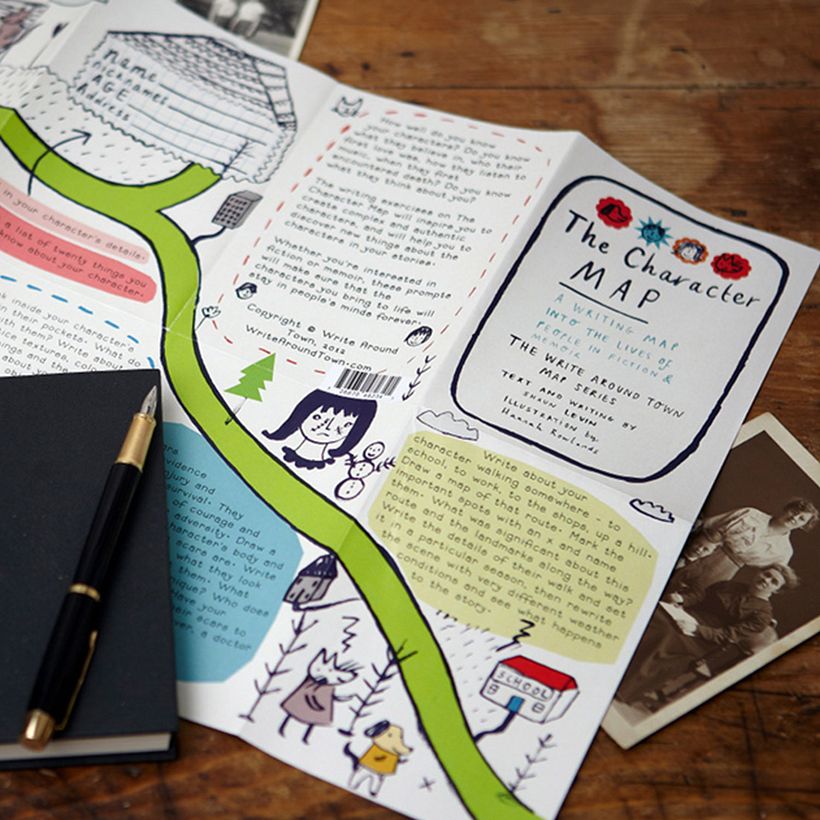 Name
Nicknames
AGE
Address
in your character's details.
a list of twenty things you
know about your character.
How well do you know
your characters? Do you know
what they believe in, who their
first love was, how they listen to
music, when they first
encountered death? Do you know
what they think about you?
The writing exercises on The
Character Map will inspire you to
create complex and authentic
characters, and will help you to
discover new things about the
characters in your stories.
Whether you're interested in
fiction or memoir, these prompts
will make sure that the
characters you bring to life will
stay in people's minds forever.
Copyright © Write Around
Town, 2012
WriteAroundTown.com
The Character
MAP
A WRITING MAP
INTO THE LIVES OF
PEOPLE IN FICTION &
MEMOIR
THE WRITE AROUND TOWN
MAP SERIES
TEXT AND WRITING BY
SHAUN LEVIN
ILLUSTRATION by
Hannah Rowlands
inside your character's
in their pockets. What do
with them? Write about
textures,
and the
about
Write about your
character walking somewhere - to
school, to work, to the shops, up a hill.
Draw a map of that route. Mark the
important spots with an x and name
them. What was significant about this
route and the landmarks along the way?
Write the details of their walk and set
it in a particular season, then rewrite
the scene with very different weather
conditions and see what happens
to the story.
evidence
injury and
survival. They
of courage and
adversity. Draw a
character's body and
scars are. Write
what they look
them. What
Who does
Have your
their scars to
, a doctor
SCHOOL